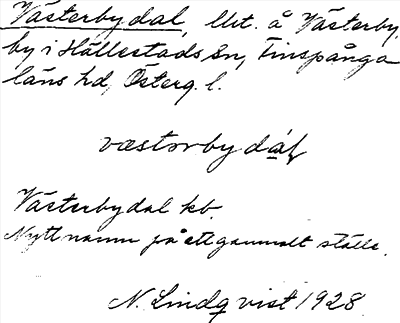 Västerbydal, llrt. å Västerby,
by i Hällestads sn, Finspånga
läns hd, Österg. l.
væstərbydɑ́ḷ
Västerbydal kb.
Nytt namn på ett gammalt ställe.
N. Lindqvist 1928